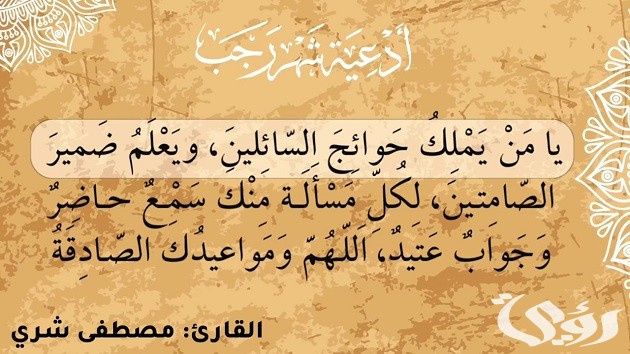 أدعية شهر رجب
يا مَنْ يَمْلِكُ حَوائِجَ السّائِلينَ، ويَعْلَمُ ضَميرَ
الصّامِتينَ، لكُلِّ مَسْأَلَـة مِنْك سَمْـعٌ حـاضِرٌ
وَجَوابٌ عَتَيدٌ، اَللّـهُمّ وَمَواعيدُكَ الصّـادِقَةُ
رؤى
القارئ: مصطفى شري